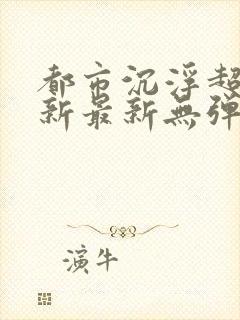 都市沉浮超
新最新無弹
演牛